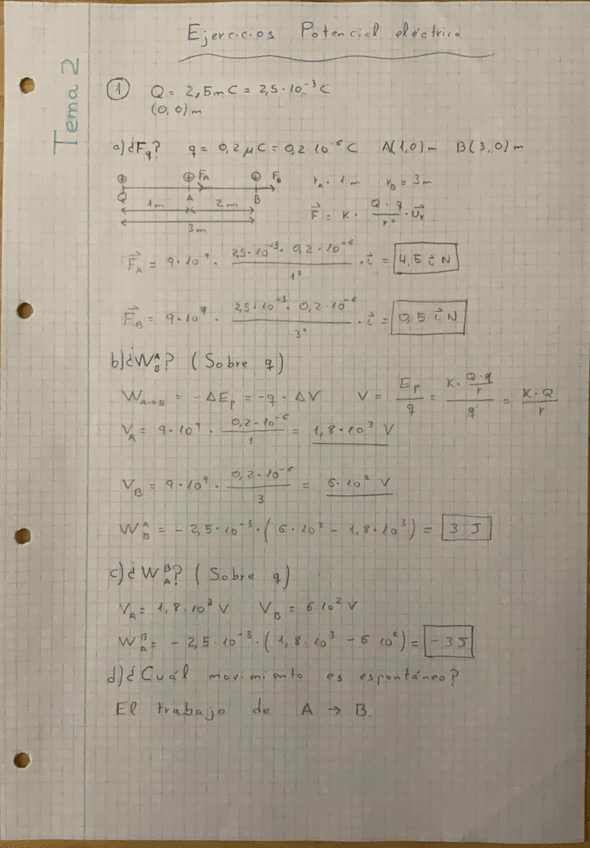 Ejercicios Potencial eléctrico
Tema 2
① Q = 2,5mC = 2,5·10⁻³C
(0,0)m
a)¿F_q? q = 0,2 μC = 0,2·10⁻⁶C A(1,0)m B(3,0)m
⊕ ⊕ F_A ⊕ F_B r_A = 1m r_B = 3m
Q A B
1m 2m
3m
F⃗ = K · Q·q/r² · U⃗_r
F⃗_A = 9·10⁹ · 2,5·10⁻³ · 0,2·10⁻⁶/1² · i⃗ = 4,5 i⃗ N
F⃗_B = 9·10⁹ · 2,5·10⁻³ · 0,2·10⁻⁶/3² · i⃗ = 0,5 i⃗ N
b)¿W_B^A? (Sobre q)
W_A→B = -ΔE_p = -q · ΔV V = E_p/q = K · Q·q/r/q = K·Q/r
V_A = 9·10⁹ · 0,2·10⁻⁶/1 = 1,8·10³ V
V_B = 9·10⁹ · 0,2·10⁻⁶/3 = 6·10² V
W_B^A = -2,5·10⁻³·(6·10² - 1,8·10³) = 3 J
c)¿W_A^B? (Sobre q)
V_A = 1,8·10³ V V_B = 6 10² V
W_A^B = -2,5·10⁻³·(1,8·10³ - 6 10²) = -3J
d)¿Cuál movimiento es espontáneo?
El trabajo de A → B.